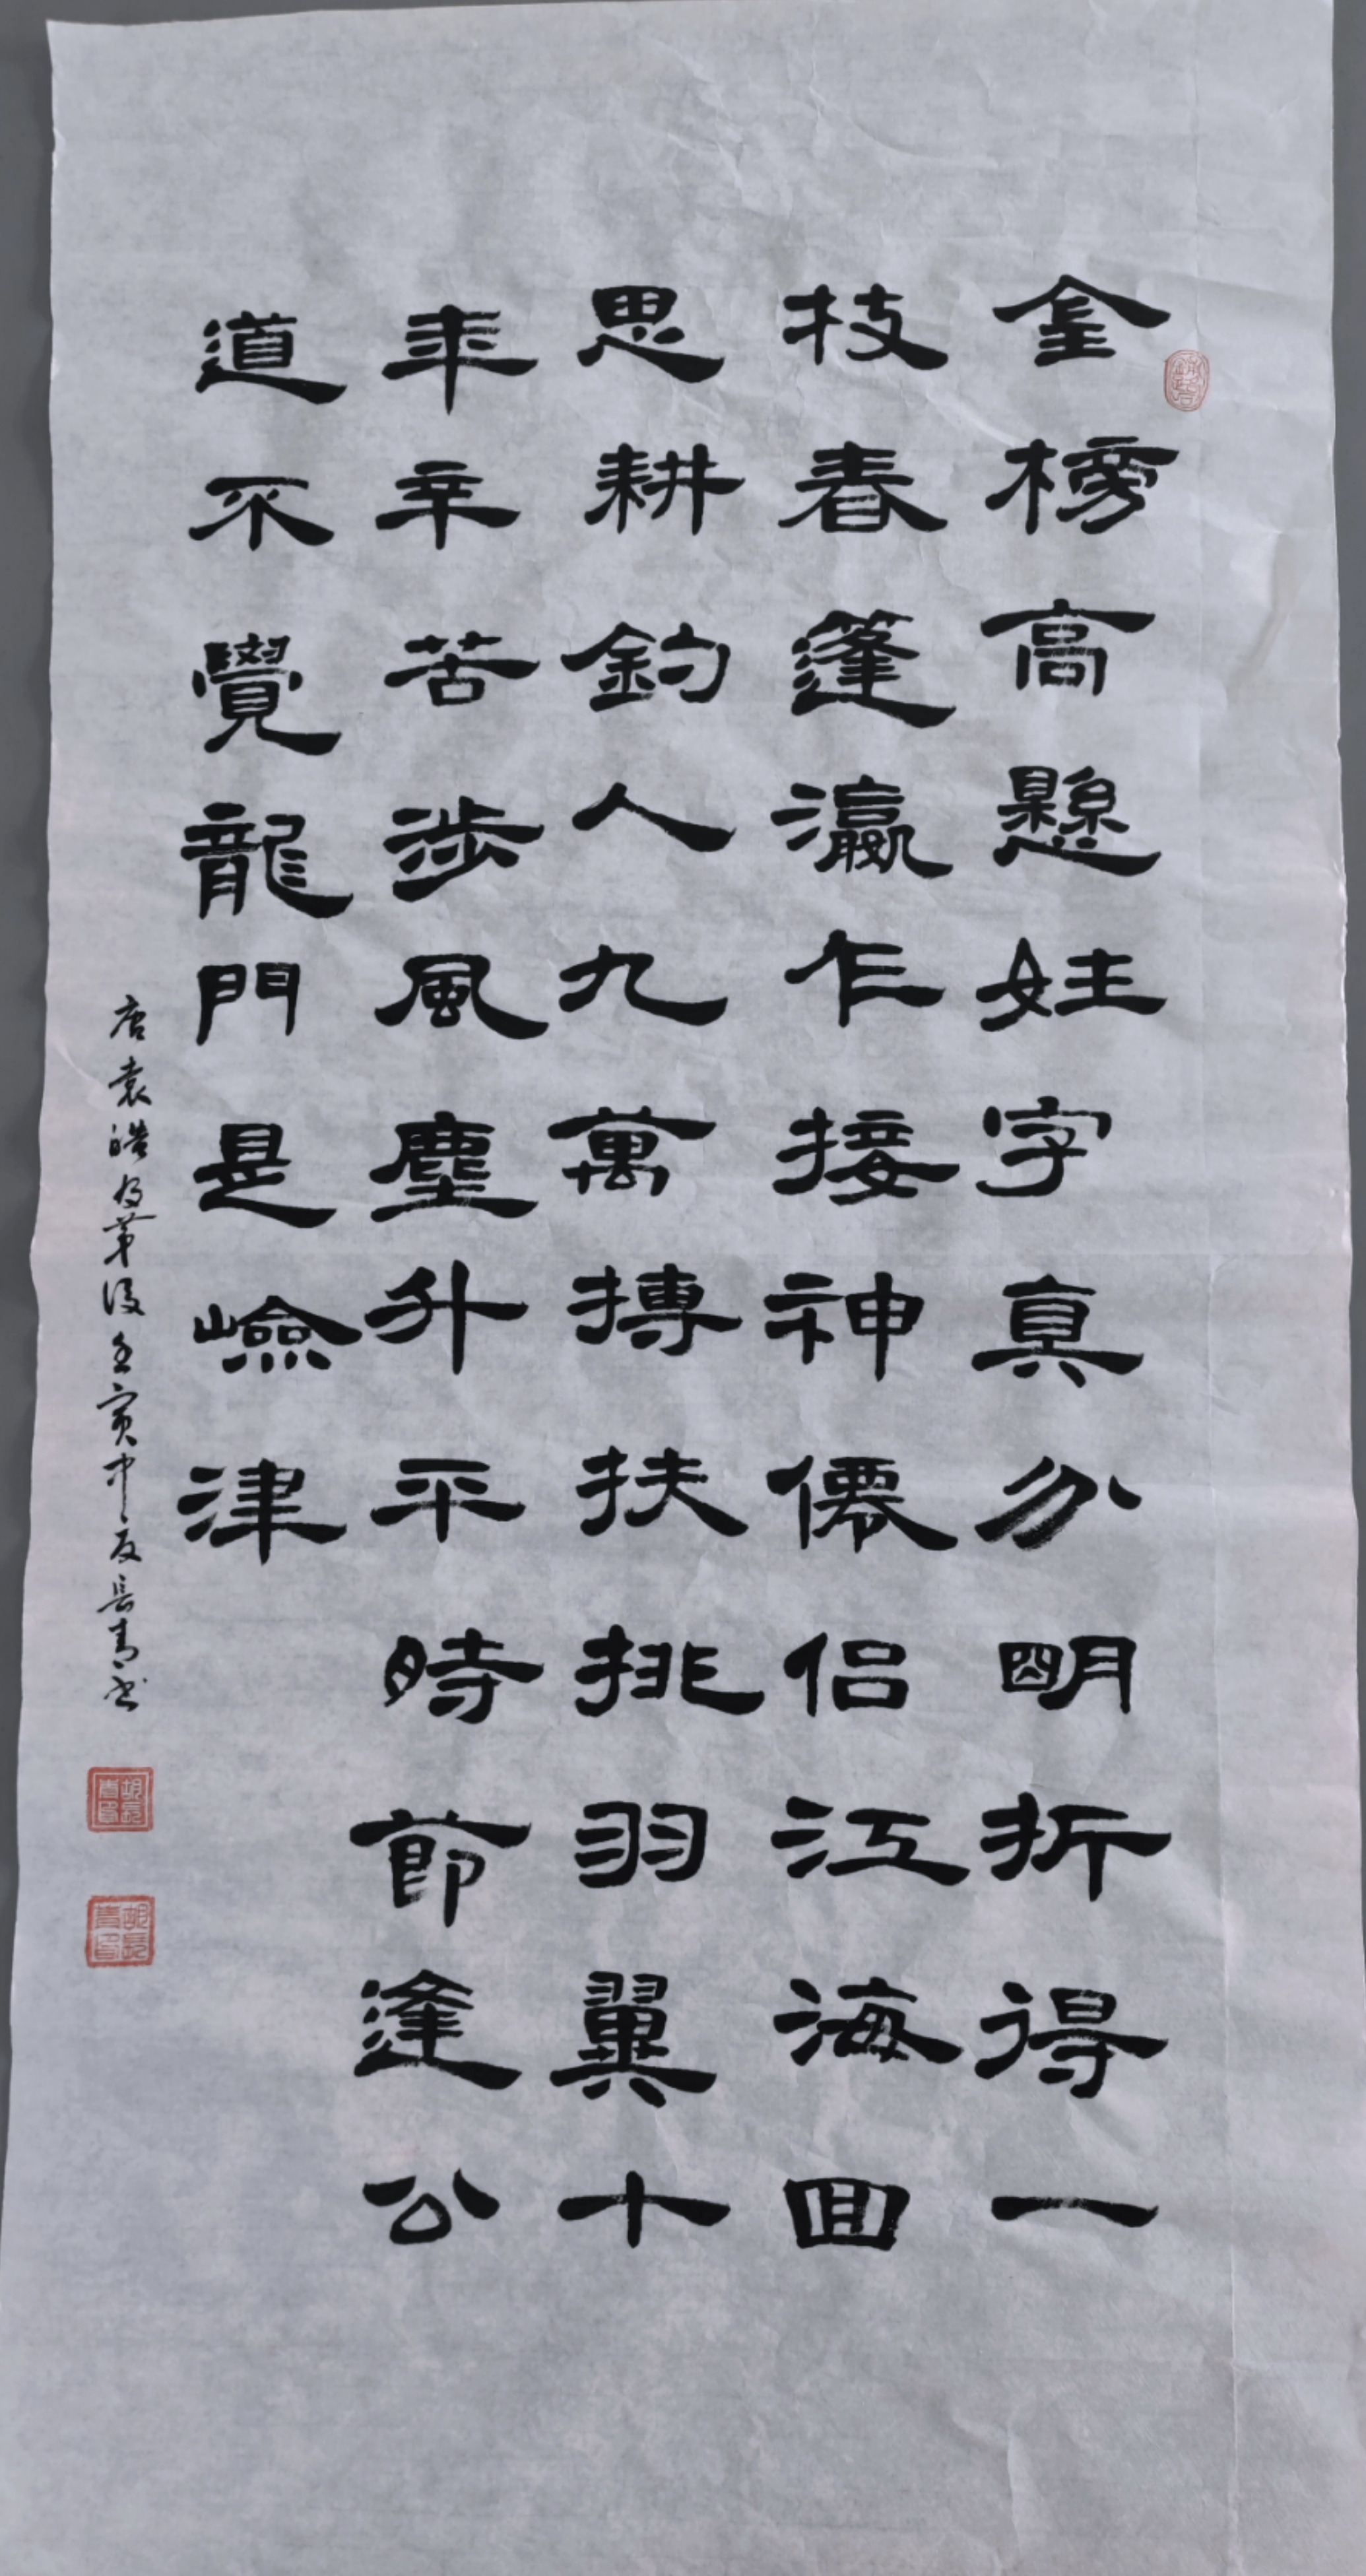 金榜高懸姓字真分明折得一
技春篷瀛乍接神僊侣江海囬
思耕釣人九萬搏扶排羽翼十
年辛苦涉風塵升平時節逢公
道不覺龍門是嶮津
唐袁皓及第後壬寅中夏長青书
胡長青印
胡長青印